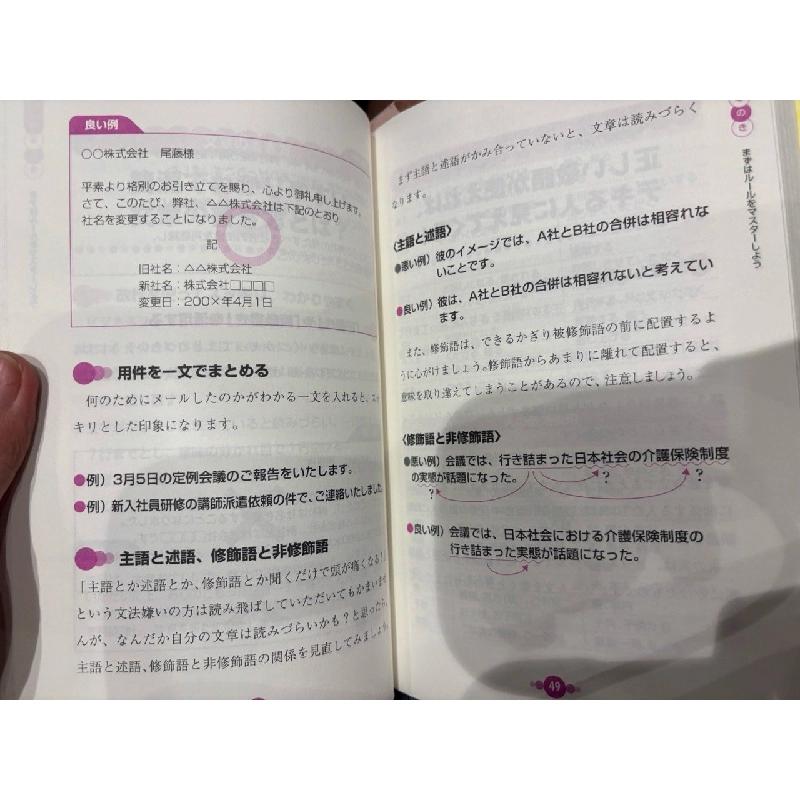 良い例
○○株式会社　尾藤様
平素より格別のお引き立てを賜り、心より御礼申し上げます。
さて、このたび、弊社、△△株式会社は下記のとおり
社名を変更することになりました。
記
旧社名：△△株式会社
新社名：株式会社□□□□
変更日：200×年4月1日
用件を一文でまとめる
何のためにメールしたのかがわかる一文を入れると、スッ
キリとした印象になります。
●例）3月5日の定例会議のご報告をいたします。
●例）新入社員研修の講師派遣依頼の件で、ご連絡いたしました
主語と述語、修飾語と非修飾語
「主語とか述語とか、修飾語とか聞くだけで頭が痛くなる！」
という文法嫌いの方は読み飛ばしていただいてもかまいませ
んが、なんだか自分の文章は読みづらいかも？と思ったら、
主語と述語、修飾語と非修飾語の関係を見直してみましょう。
まず主語と述語がかみ合っていないと、文章は読みづらく
なります。
〈主語と述語〉
●悪い例）彼のイメージでは、A社とB社の合併は相容れな
いことです。
●良い例）彼は、A社とB社の合併は相容れないと考えてい
ます。
また、修飾語は、できるかぎり被修飾語の前に配置するよ
うに心がけましょう。修飾語からあまりに離れて配置すると、
意味を取り違えてしまうことがあるので、注意しましょう。
〈修飾語と非修飾語〉
●悪い例）会議では、行き詰まった日本社会の介護保険制度
の実態が話題になった。
? ? ?
●良い例）会議では、日本社会における介護保険制度の
行き詰まった実態が話題になった。
49
のき
まずはルールをマスターしよう